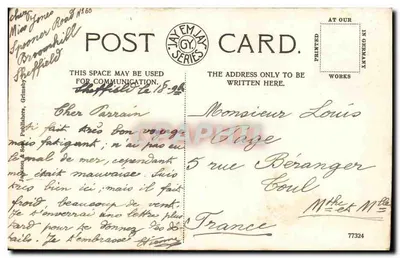 chez
Miss Jones
Spooner Road N° 60
Broomhill
Sheffield
POST CARD.
JAY EM JAY
GY.
SERIES
AT OUR
PRINTED
IN GERMANY
WORKS
THIS SPACE MAY BE USED
FOR COMMUNICATION.
THE ADDRESS ONLY TO BE
WRITTEN HERE.
Sheffield le 18
Cher Parrain
J'ai fait très bon voyage
mais fatigant; n'ai pas eu
le mal de mer, cependant
mer était mauvaise. Suis
très bien ici, mais il fait
froid, beaucoup de vent.
Je t'enverrai une lettre plus
tard pour te donner des dé
tails. Je t'embrasse
Monsieur Louis
5 rue Béranger
Toul
Mthe et Mlle
France
Grimsby
77324